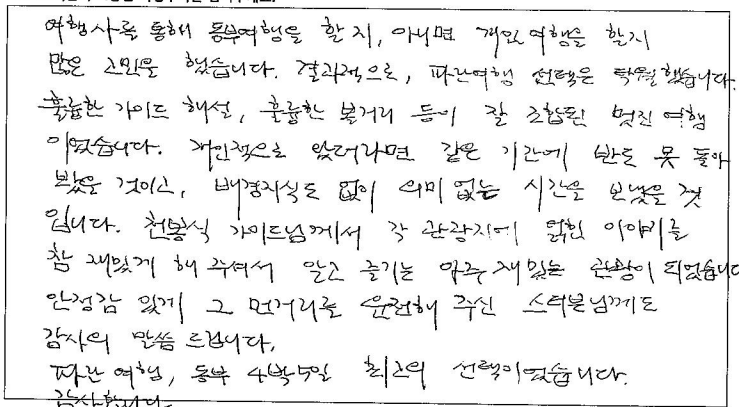 여행사를 통해 동부여행을 할 지, 아니면 개인 여행을 할지
많은 고민을 했습니다. 결과적으로, 파란여행 선택은 탁월했습니다.
훌륭한 가이드 해설, 훌륭한 볼거리 등이 잘 조합된 멋진 여행
이었습니다. 개인적으로 왔더라면 같은 기간에 반도 못 돌아
봤을 것이고, 배경지식도 없이 의미 없는 시간을 보냈을 것
입니다. 천봉식 가이드님께서 각 관광지에 얽힌 이야기를
참 재밌게 해 주셔서 알고 즐기는 아주 재밌는 관광이 되었습니다
안정감 있게 그 먼거리를 운전해 주신 스티븐님께도
감사의 말씀 드립니다.
파란 여행, 동부 4박5일 최고의 선택이었습니다.
감사합니다.